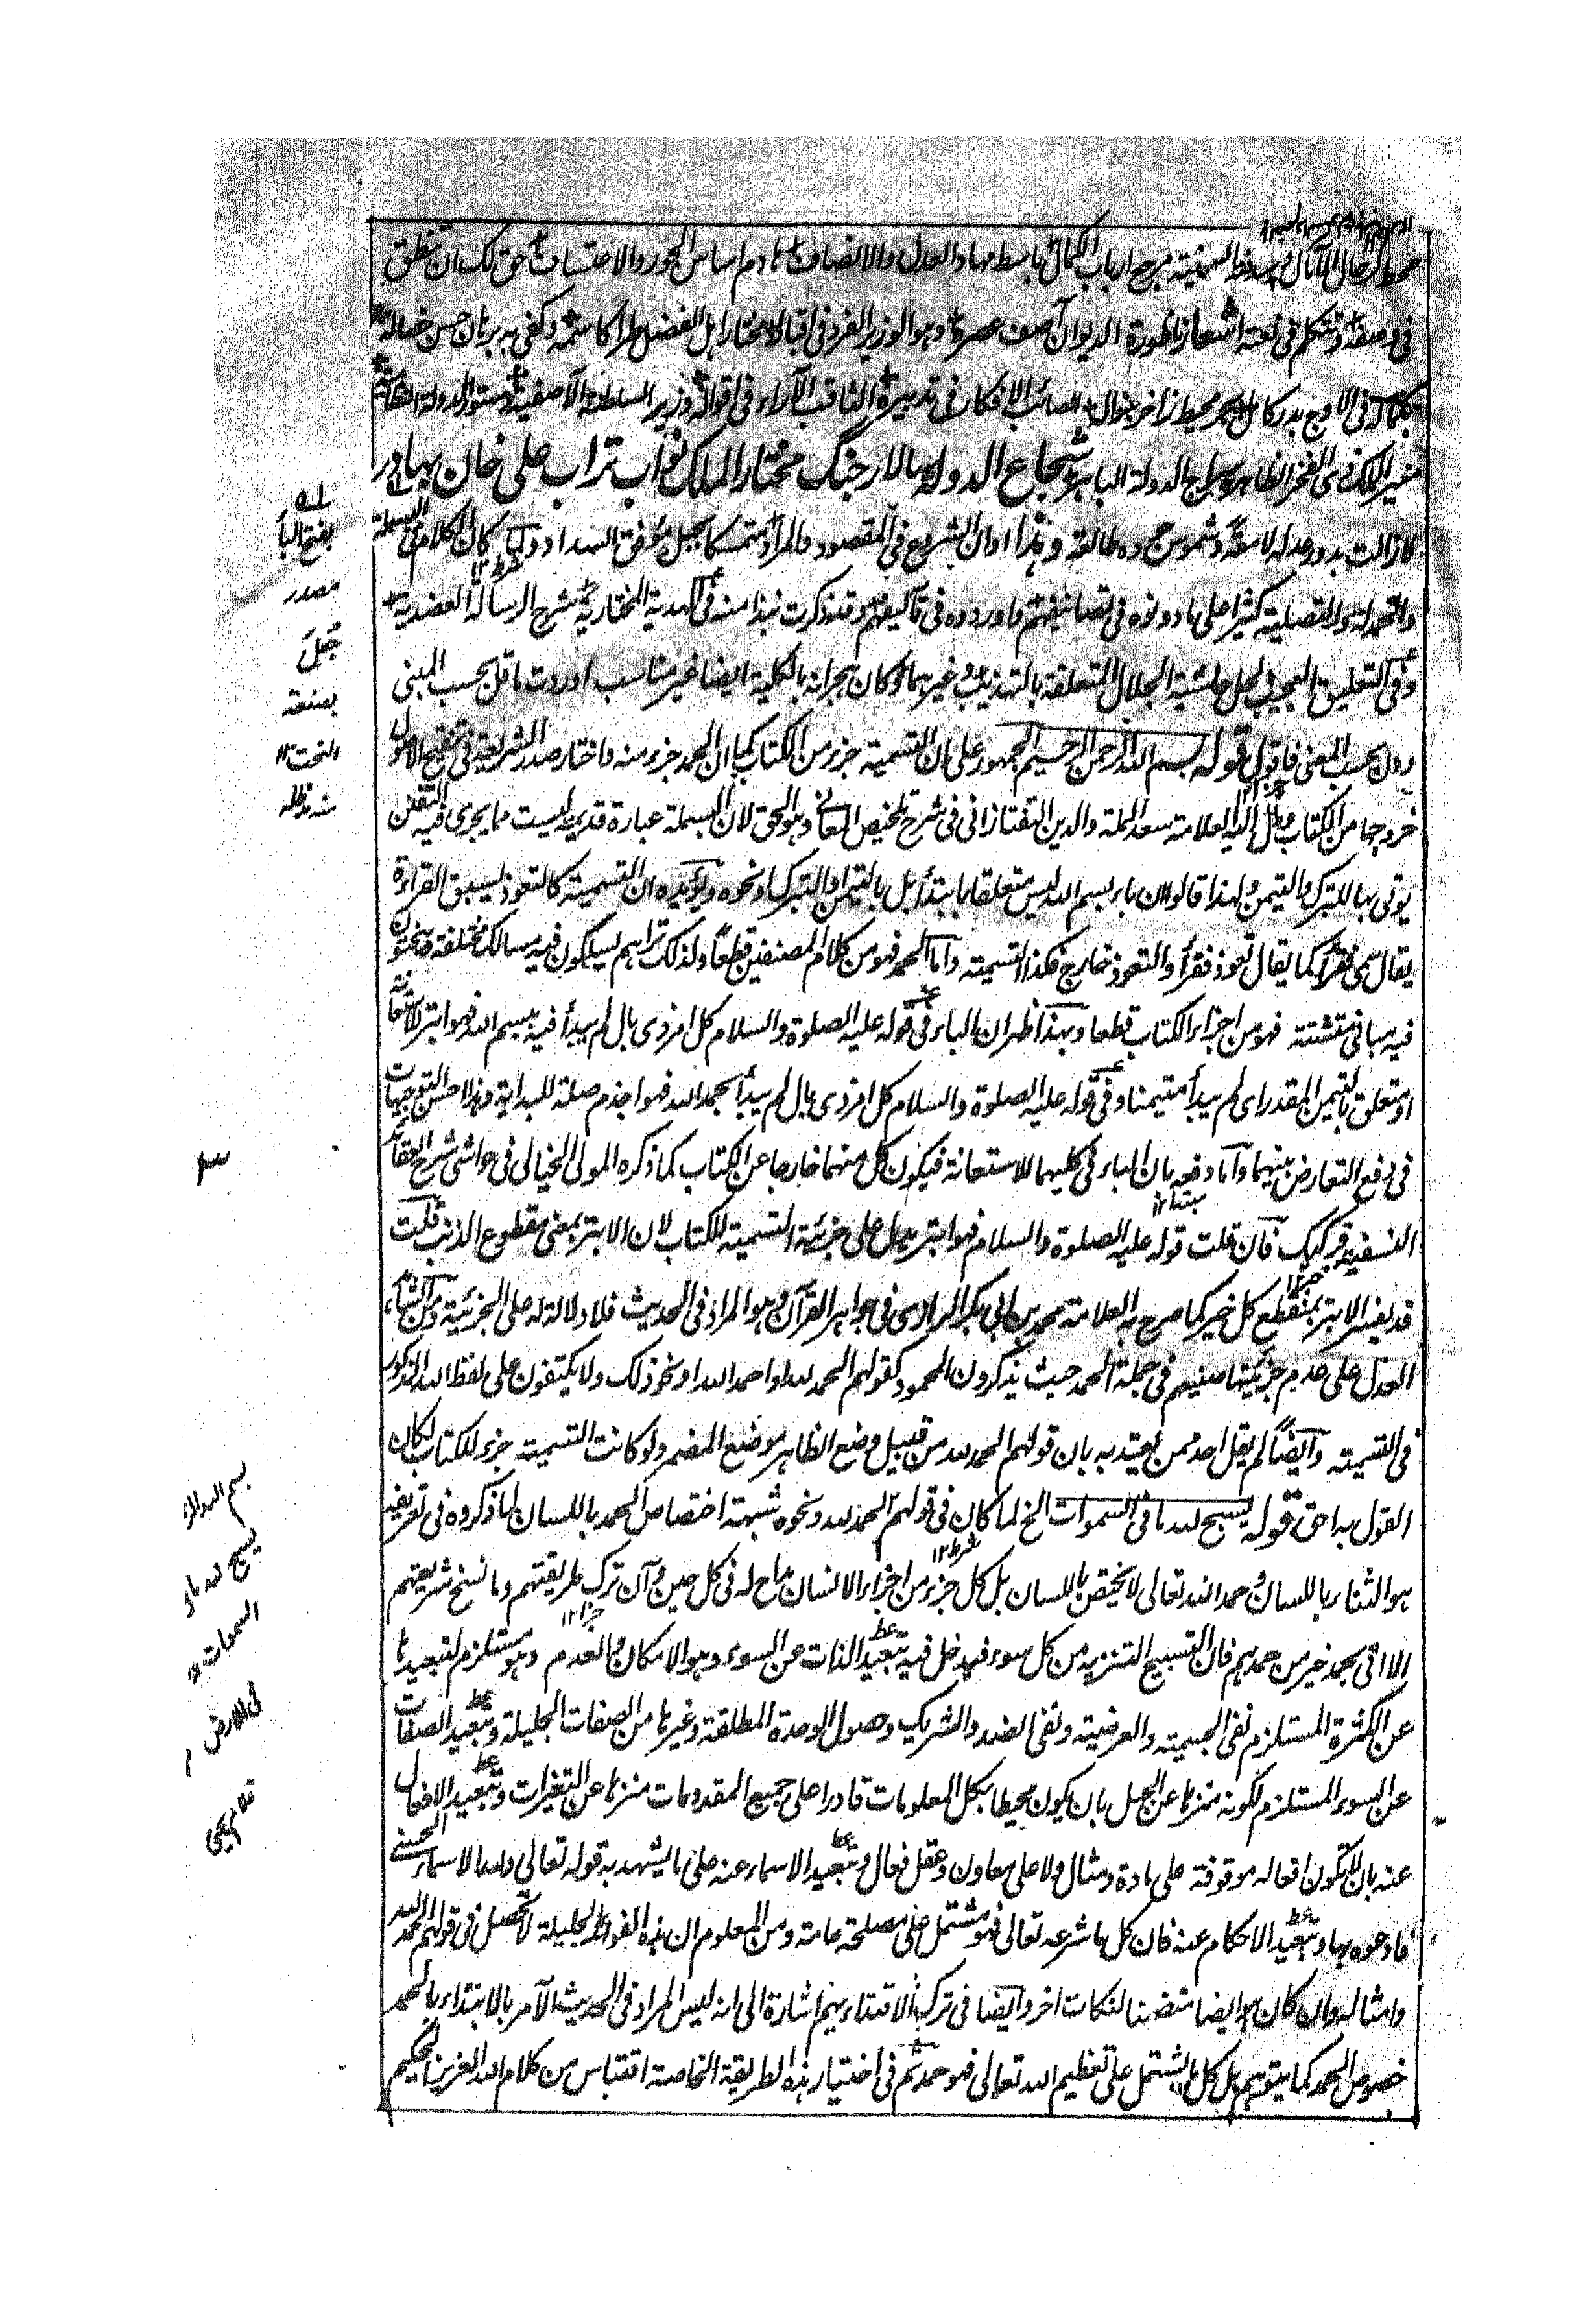 محط لرحال الآمال مرجع ارباب الكمال باسط مهاد العدل والانصاف هادم اساس الجور والاعتساف حق لك ان تنطق
فى وصفه وتتكلم فى نعته اشعار ناظورة الديوان آصف عصره وهو الوزير الفرد فى اقباله مختار اهل الفضل طرا كاسمه وكفى به برهان حسن خصاله
بكماله فى الاوج بدر كامل بحر محيط زاخر بنواله الصائب الافكار فى تدبيره الثاقب الآراء فى اقواله وزير السلطنة الآصفية دستور الدولة النظامية
منير الملك ذى الفخر الظاهر سراج الدولة الباهر شجاع الدولة سالار جنگ مختار الملك نواب تراب على خان بهادر
لازالت بدور عدله لامعة وشموس جوده طالعة وهذا اوان الشروع فى المقصود والمراد متمسكا بحبل موفق السداد ولما كان الكلام فى البسملة
والحمدلة والتصلية كثيرا على ما دونوه فى تصانيفهم واوردوه فى تآليفهم وقد ذكرت نبذا منه فى الهدية المختارية شرح الرسالة العضدية
وفى التعليق العجيب لحل حاشية الجلال المتعلقة بالتهذيب وغيرهما وكان هجرانه بالكلية ايضا غير مناسب اوردت ما قل بحسب المبنى
ودل بحسب المعنى فاقول قوله بسم الله الرحمن الرحيم الجمهور على ان التسمية جزء من الكتاب كما ان الحمد جزء منه واختار صدر الشريعة فى تنقيح الاصول
خروجها من الكتاب ومال اليه العلامة سعد الملة والدين التفتازانى فى شرح تلخيص المعانى وهو الحق لان البسملة عبارة قديمة ليست مما يجرى فيه التفنن
يوتى بها للتبرك والتيمن ولهذا قالوا ان باء بسم الله ليس متعلقا بابتدأ بل بالتيمن او التبرك او نحوه ويؤيده ان التسمية كالتعوذ يسبق القراءة
يقال سمى فقرأ كما يقال تعوذ فقرأ والتعوذ خارج فكذا التسمية واما الحمد فهو من كلام المصنفين قطعا ولذلك تراهم يسلكون فيه مسالك مختلفة وينحون
فيه مبانى متشتتة فهو من اجزاء الكتاب قطعا وبهذا ظهر ان الباء فى قوله عليه الصلوة والسلام كل امر ذى بال لم يبدأ فيه ببسم الله فهو ابتر للاستعانة
او متعلق بالتيمن المقدر اى لم يبدأ متيمنا وفى قوله عليه الصلوة والسلام كل امر ذى بال لم يبدأ بحمد الله فهو اجذم صلة للبداية وهذا احسن التوجيهات
فى رفع التعارض بينهما واما دفعه بان الباء فى كليهما للاستعانة فيكون كل منهما خارجا عن الكتاب كما ذكره المولى الخيالى فى حواشى شرح العقائد
النسفية فركيك فان قلت قوله عليه الصلوة والسلام فهو ابتر يدل على جزئية التسمية للكتاب لان الابتر بمعنى مقطوع الذنب قلت
قد يفسر الابتر بمنقطع كل خير كما صرح به العلامة محمد بن ابى بكر الرازى فى جواهر القرآن وهو المراد فى الحديث فلا دلالة له على الجزئية ومن الشاهد
العدل على عدم جزئيتها صنيعهم فى جملة الحمد حيث يذكرون المحمود كقولهم الحمد لله او احمد الله او نحو ذلك ولا يكتفون على لفظ الله المذكور
فى التسمية وايضا لم يقل احد ممن يعتد به بان قولهم الحمد لله من قبيل وضع الظاهر موضع المضمر ولو كانت التسمية جزء للكتاب لكان
القول به احق قوله يسبح لله ما فى السموات الخ لما كان فى قولهم الحمد لله ونحوه شبهة اختصاص الحمد باللسان لما ذكروه فى تعريفه
هو الثناء باللسان وحمد الله تعالى لا يختص باللسان بل كل جزء من اجزاء الانسان مداح له فى كل حين وآن ترك طريقتهم وما نسخ شريعتهم
الا اتى بحمد خير من حمدهم فان التسبيح التنزيه من كل سوء فيدخل فيه تبعيد الذات عن السوء وهو الامكان والعدم وهو مستلزم لتبعيدها
عن الكثرة المستلزم نفى الجسمية والعرضية ونفى الضد والشريك وحصول الوحدة المطلقة وغيرها من الصفات الجليلة وتبعيد الصفات
عن السوء المستلزم لكونه منزها عن الجهل بان يكون محيطا بكل المعلومات قادرا على جميع المقدورات منزها عن التغيرات وتبعيد الافعال
عنه بان لا تكون افعاله موقوفة على مادة ومثال ولا على معاون وعقل فعال وتبعيد الاسماء عنه على ما يشهد به قوله تعالى ولله الاسماء الحسنى
فادعوه بها وتبعيد الاحكام عنه فان كل ما شرعه تعالى فهو مشتمل على مصلحة عامة ومن المعلوم ان هذه الفوائد الجليلة لا تحصل فى قولهم الحمد لله
وامثاله وان كان هو ايضا متضمنا لنكات اخر وايضا فى ترك الاقتداء بهم اشارة الى انه ليس المراد فى الحديث الآمر بالابتداء بالحمد
خصوص الحمد كما يتوهم بل كل ما يشتمل على تعظيم الله تعالى فهو حمد ثم فى اختيار هذه الطريقة الخاصة اقتباس من كلام الله العزيز الحكيم
بفتح الباء
مصدر
جبل
بصنعة
النحت ١٢
منه مد ظله
٣
بسم الله الر
يسبح لله ما فى
السموات و
فى الارض